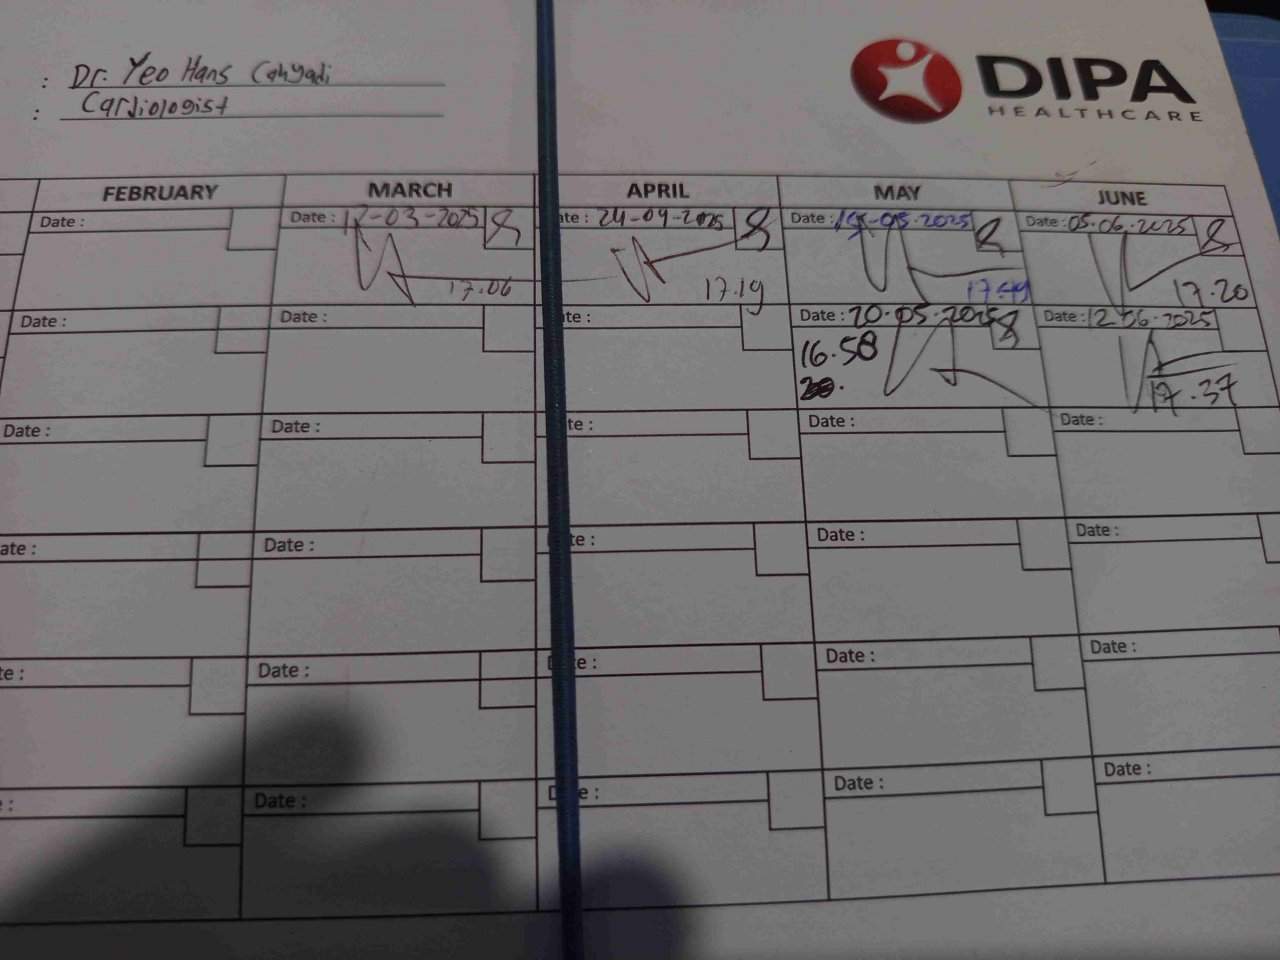 : Dr. Yeo Hans Cahyadi
: Cardiologist
DIPA
HEALTHCARE
FEBRUARY MARCH APRIL MAY JUNE
Date : Date : 12-03-2025 ate : 24-04-2025 Date : Date : 05.06.2025
17.06 17.19 17.49 17.20
Date : Date : ate : Date : 20.05.2025 Date : 12.06.2025
16.58
17.37
Date : Date : te : Date : Date :
ate : Date : te : Date : Date :
te : Date : e : Date : Date :
: Date : e : Date : Date :